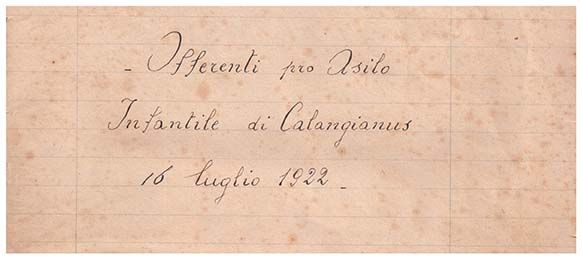 - Offerenti pro Asilo
Infantile di Calangianus
16 luglio 1922 -